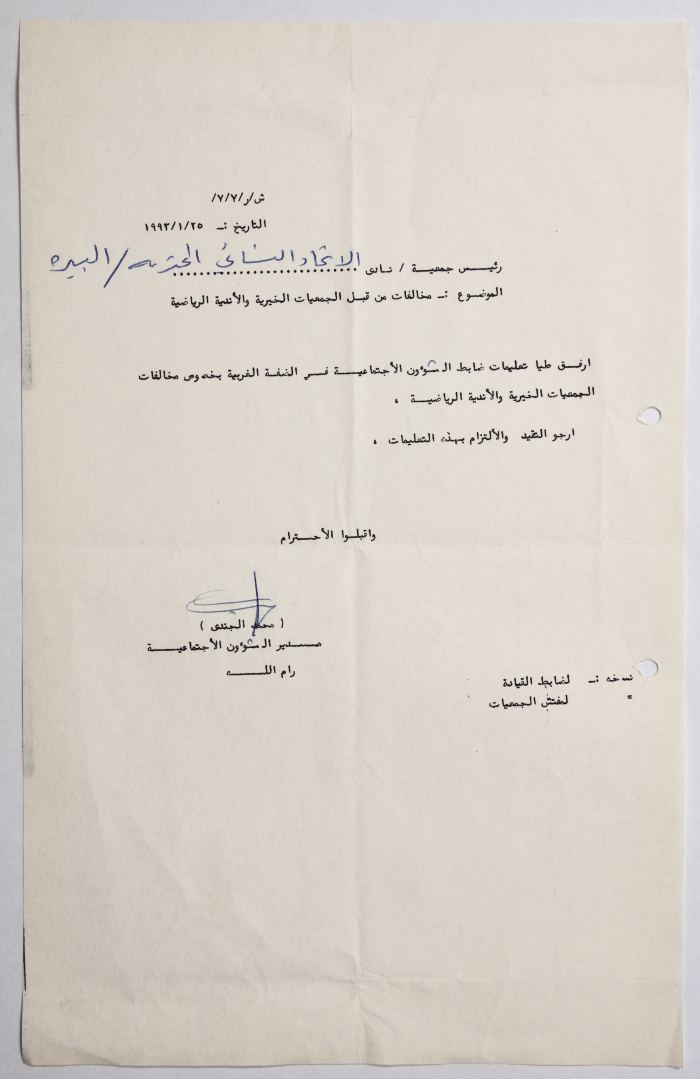 ش/ر/٧/٧/
التاريخ :ـ ١٩٩٣/١/٢٥
رئيس جمعية / نادى الاتحاد النسائي المحترمه / البيره
الموضوع :ـ مخالفات من قبل الجمعيات الخيرية والأندية الرياضية
ارفق طيا تعليمات ضابط الشؤون الأجتماعية في الضفة الغربية بخصوص مخالفات
الجمعيات الخيرية والأندية الرياضية ،
ارجو التقيد والألتزام بهذه التعليمات ،
واقبلوا الأحترام
( محمد الجندى )
مدير الشؤون الأجتماعية
رام الله
نسخه :ـ لضابط القيادة
" لمفتش الجمعيات